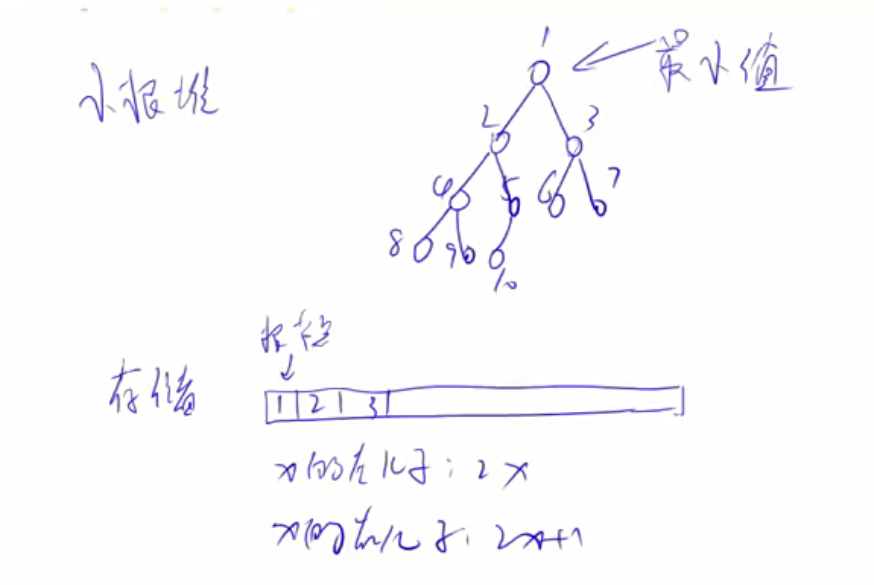 小根堆
1
最小值
2 3
4 5 6 7
8 9 10
根节点
存储 1 2 3
x的左儿子：2x
x的右儿子：2x+1